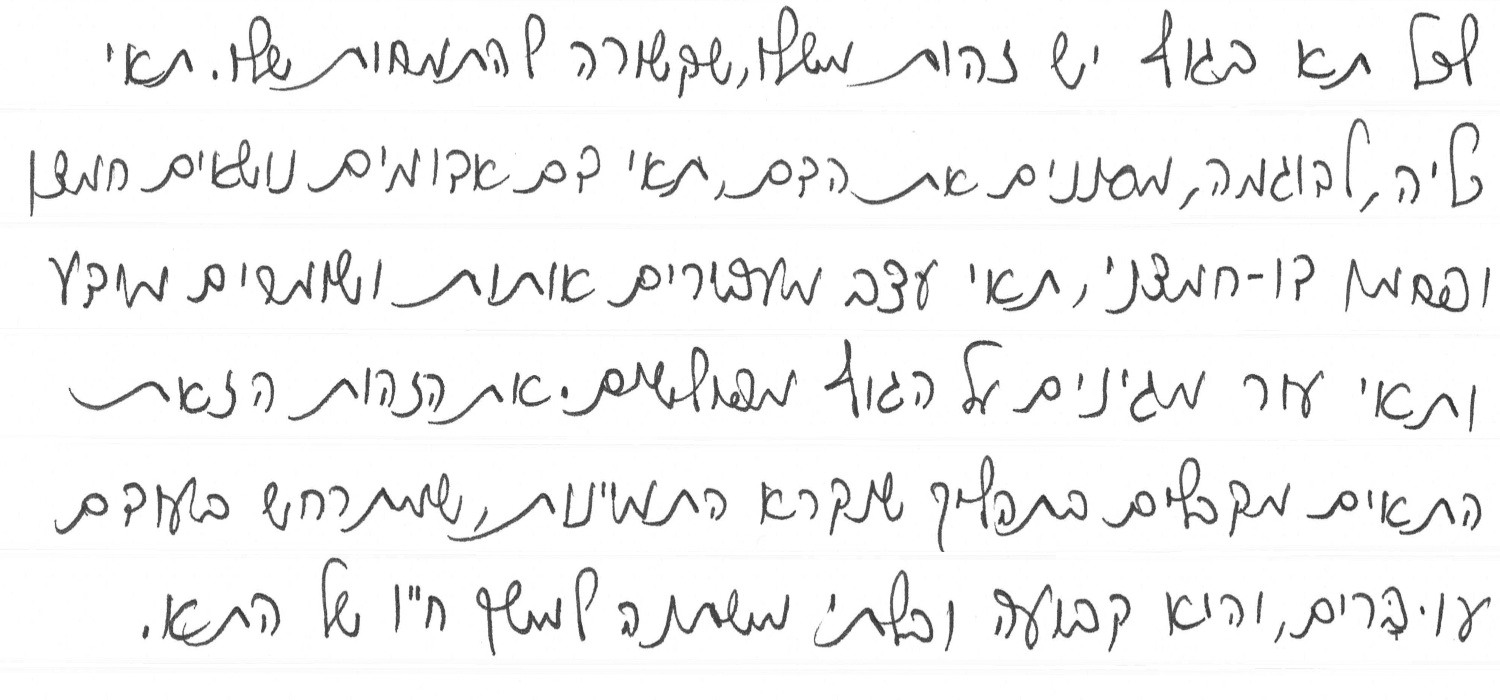 לכל תא בגוף יש זהות משלו, שקשורה להתמחות שלו. תאי
כליה, לדוגמה, מסננים את הדם, תאי דם אדומים נושאים חמצן
ופחמן דו-חמצני, תאי עצב מעבירים אותות ושומרים מידע
ותאי עור מגינים על הגוף מפולשים. את הזהות הזאת
התאים מקבלים בתהליך שנקרא התמיינות, שמתרחש בעודם
עוברים, והיא קבועה ובלתי משתנה למשך חייו של התא.